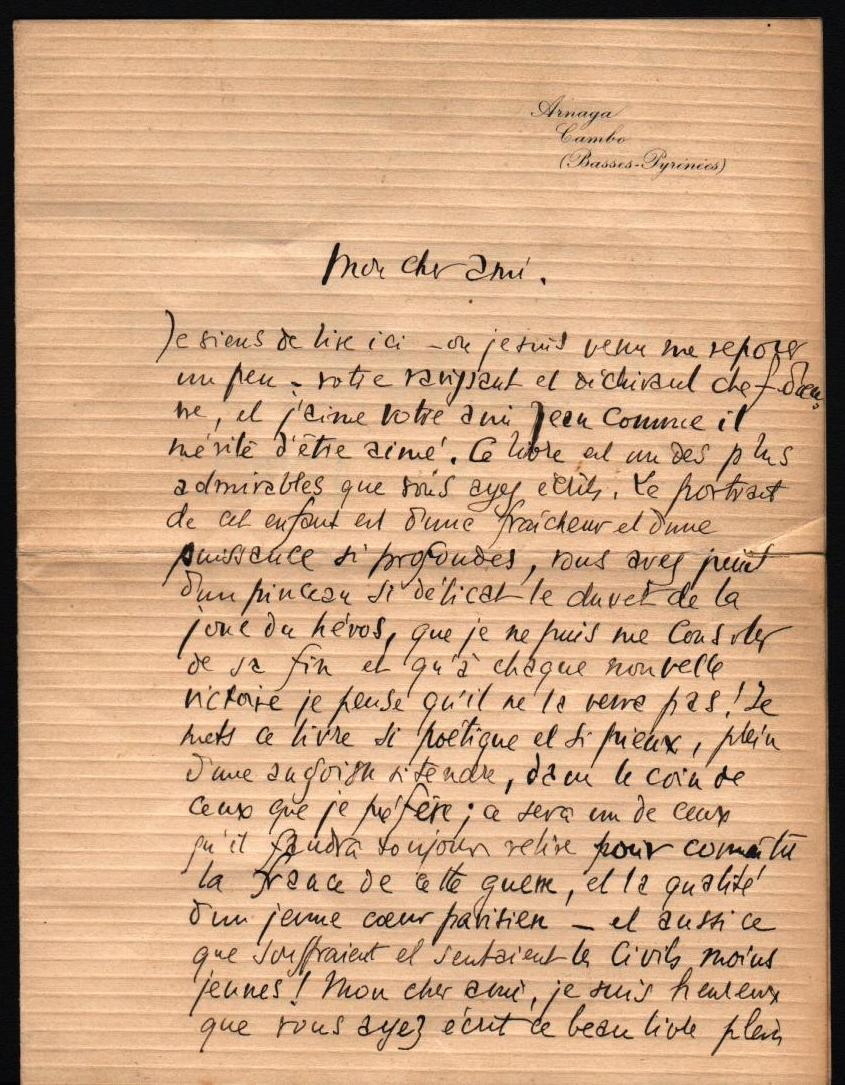 Arnaga
Cambo
(Basses-Pyrénées)
Mon cher ami.
Je viens de lire ici – où je suis venu me reposer
un peu – votre ravissant et déchirant chef-d'œu-
vre, et j'aime votre ami Jean comme il
mérite d'être aimé. Ce livre est un des plus
admirables que vous ayez écrits. Le portrait
de cet enfant est d'une fraîcheur et d'une
puissance si profondes, vous avez peint
d'un pinceau si délicat le duvet de la
joue du héros, que je ne puis me consoler
de sa fin et qu'à chaque nouvelle
victoire je pense qu'il ne la verra pas! Je
mets ce livre si poétique et si pieux, plein
d'une angoisse si tendre, dans le coin de
ceux que je préfère; ce sera un de ceux
qu'il faudra toujours relire pour connaître
la France de cette guerre, et la qualité
d'un jeune cœur parisien – et aussi ce
que souffraient et sentaient les Civils moins
jeunes! Mon cher ami, je suis heureux
que vous ayez écrit ce beau livre plein